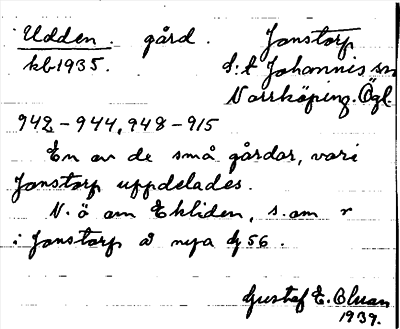 Udden. gård. Jonstorp
kb 1935. S:t Johannis sn
Norrköping. Ögl.
942-944, 948-915
En av de små gårdar, vari
Jonstorp uppdelades.
N. ö om Ekliden, s. om r
i Jonstorp å nya 56.
Gustef E. Oluan
1939.